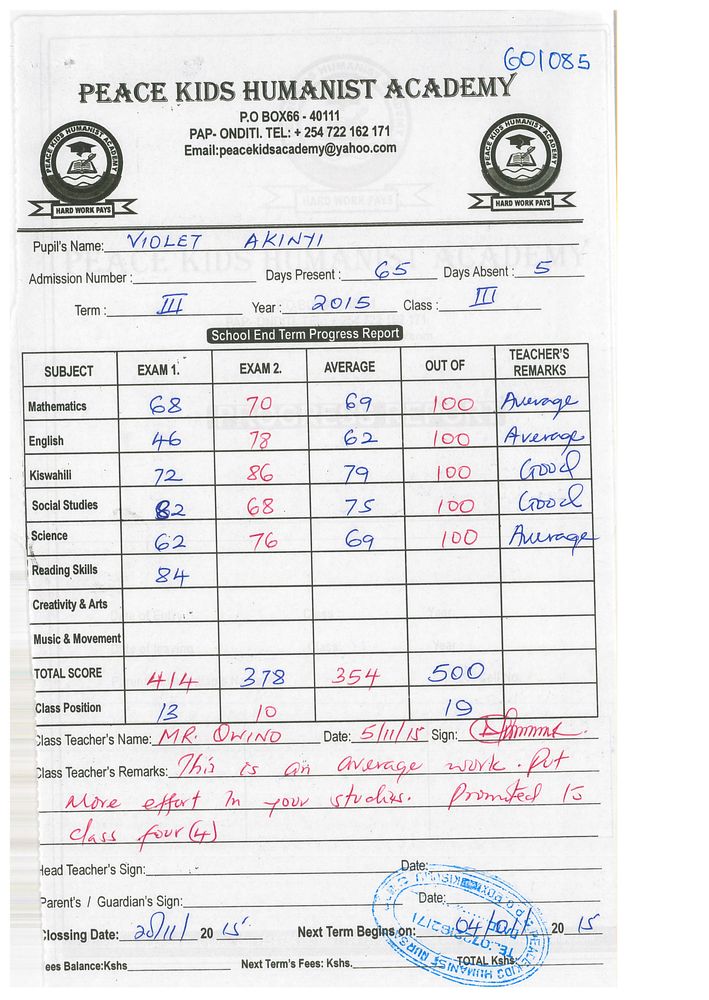 601085
PEACE KIDS HUMANIST ACADEMY
P.O BOX66 - 40111
PAP- ONDITI. TEL: + 254 722 162 171
Email:peacekidsacademy@yahoo.com
PEACE KIDS HUMANIST ACADEMY
HARD WORK PAYS
PEACE KIDS HUMANIST ACADEMY
HARD WORK PAYS
Pupil's Name: VIOLET AKINYI
Admission Number : Days Present : 65 Days Absent : 5
Term : III Year : 2015 Class : III
School End Term Progress Report
SUBJECT EXAM 1. EXAM 2. AVERAGE OUT OF TEACHER'S REMARKS
Mathematics 68 70 69 100 Average
English 46 78 62 100 Average
Kiswahili 72 86 79 100 Good
Social Studies 82 68 75 100 Good
Science 62 76 69 100 Average
Reading Skills 84
Creativity & Arts
Music & Movement
TOTAL SCORE 414 378 354 500
Class Position 13 10 19
Class Teacher's Name: MR. OWINO Date: 5/11/15 Sign:
Class Teacher's Remarks: This is an average work. Put
More effort in your studies. Promoted to
class four (4)
Head Teacher's Sign: Date:
Parent's / Guardian's Sign: Date:
Closing Date: 20/11/ 2015 Next Term Begins on: 04/01/ 2015
ees Balance:Kshs Next Term's Fees: Kshs. TOTAL Kshs